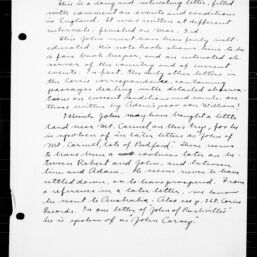 This is a long and interesting letter, filled
with comment on events and conditions
in England. It was written at different
intervals, finished as Mar. 3rd
This John must have been fairly well
educated. His note book shows him to be
a fair book keeper, and an interested ob-
server of the country and of current
events. In fact the only other letters in
the Corrie correspondence, containing
passages dealing with detailed observa-
tions on current conditions and events, are
those written by Adam's son William!
I think John may have bought a little
land near Mt. Carmel on this trip, for he
is spoken of in later letters as "John of
Mt. Carmel, late of Bedford." There seems
to have been a coolness later on be-
tween Robert and John, and between
him and Adam. He seems never to have
settled down, or to have prospered. From
a reference in a later letter, we know
he went to Australia. Also see p. 268. Corrie
Records. In one letter of John of
he is spoken of as "John Corrie".